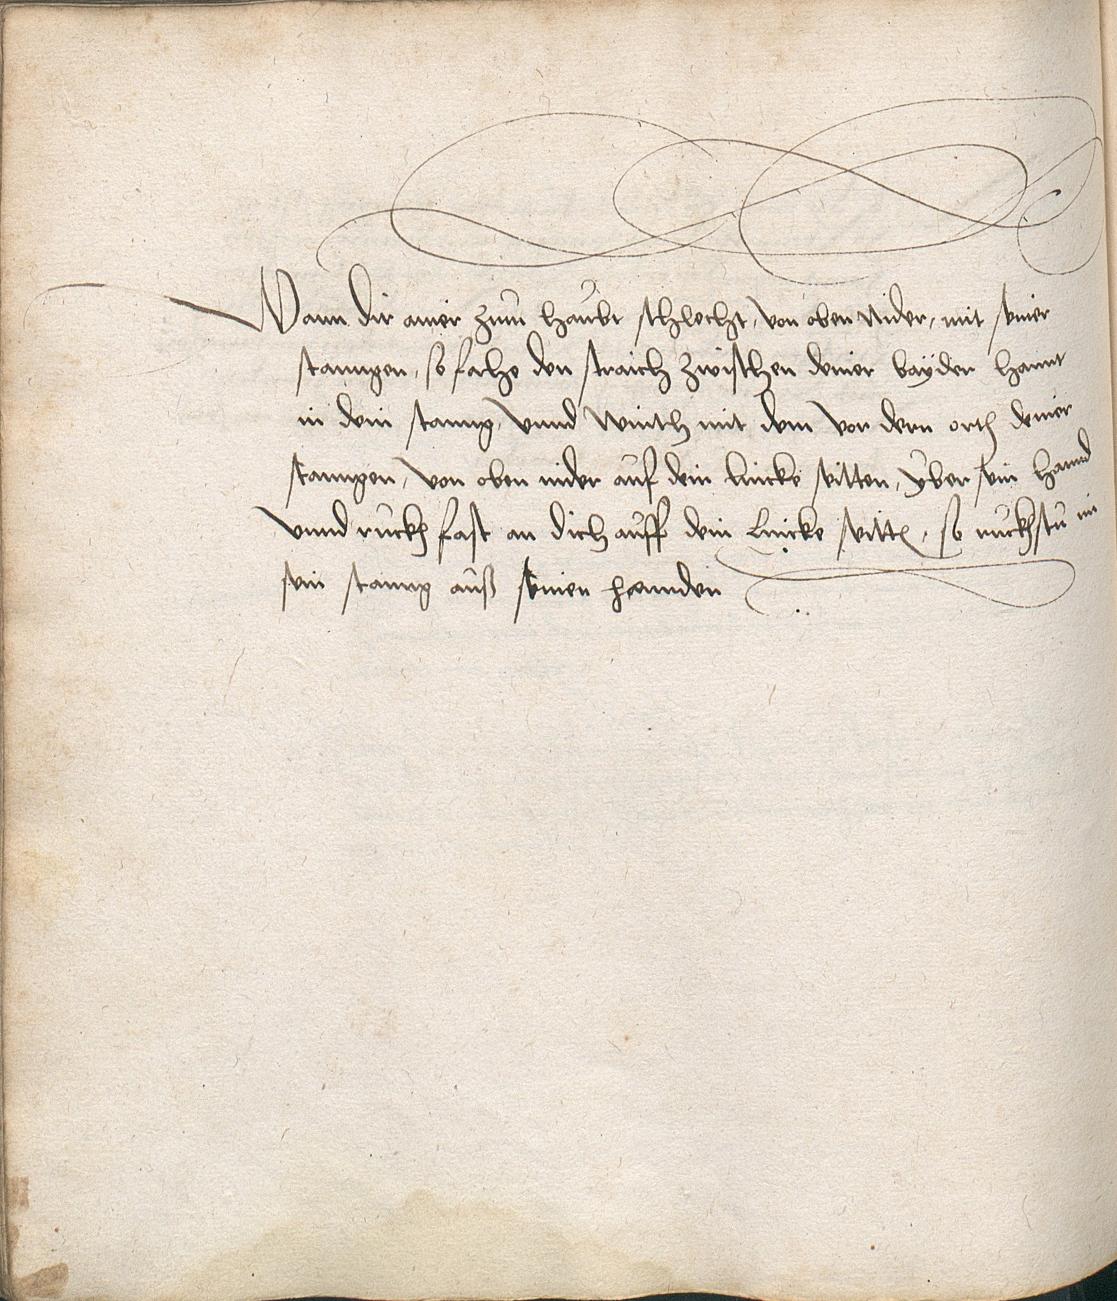 Wann dir ainer zum haubt schlecht, von oben nider, mit seiner
stanngen, so fache den straich zwischen deiner bayder hannt
in dein stanng, vnnd winth mit dem vor dern orth deiner
stanngen, von oben nider auf dein lincke seitten, yber sein hannd
vnnd ruckh fast an dich auff dein Lincke seitt, so ruckhstu im
sein stanng auß seinen hannden